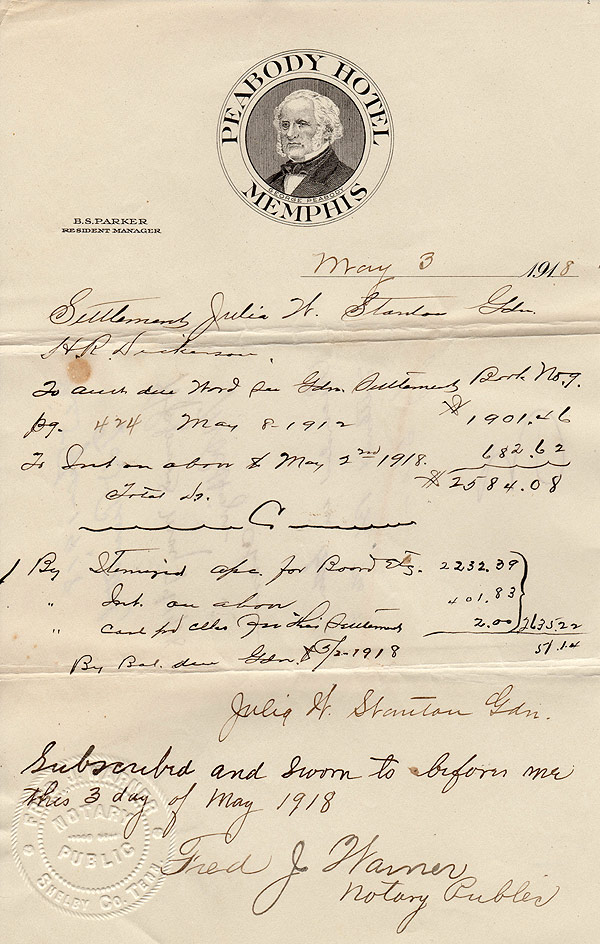 PEABODY HOTEL
GEORGE PEABODY
MEMPHIS
B.S. PARKER
RESIDENT MANAGER
May 3 1918
Settlement Julia W. Stanton Gdn.
H.R. Dickerson.
To amt due Ward see Gdn. Settlement Book No. 9.
Pg. 424 May 8-1912 $1901.46
To Int on above to May 2nd 1918. 682.62
Total Dr. $2584.08
Cr
By Itemized a/c. for Board Etc. 2232.39
" Int. on above 401.83
" Cash pd Clk for this Settlement 2.00 2635.22
By Bal. due Gdn. 5/2-1918 51.14
Julia W. Stanton Gdn.
Subscribed and sworn to before me
this 3 day of May 1918
Fred J Warner
Notary Public
NOTARY
PUBLIC
SHELBY CO. TENN